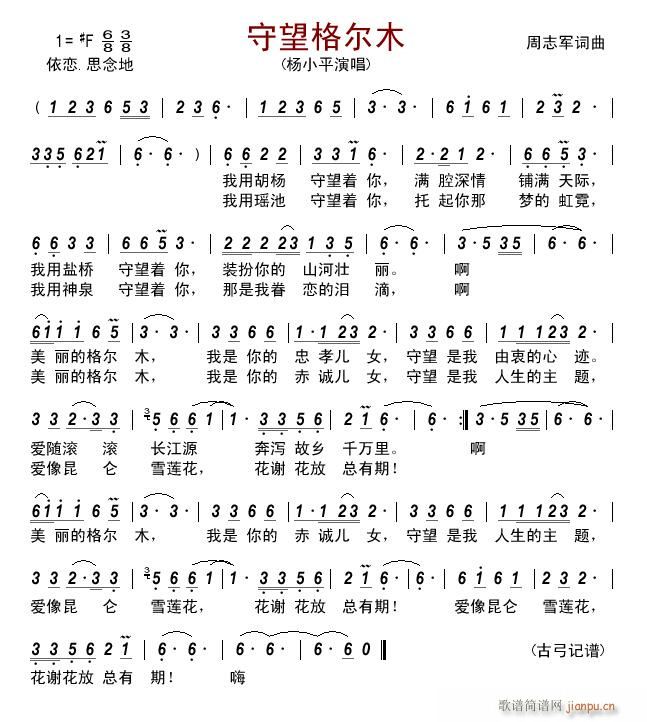 守望格尔木
1= #F 6/8 3/8
周志军词曲
依恋.思念地
(杨小平演唱)
( 1 2 3 6 5 3 | 2 3 6 · | 2 3 5 6 1 5 | 3 · 3 · | 6 1 6 1 |
3 3 5 6 2 1 | 6 · 6 · ) | 6 6 2 2 | 3 3 1 6 · | 2 · 2 1 2 | 6 6 5 3 · |
我用胡杨 守望着 你, 满 腔深情 铺满 天际,
我用瑶池 守望着 你, 托 起你那 梦的 虹霓,
6 6 3 3 | 6 6 5 3 · | 2 2 2 2 3 1 3 5 | 6 · 6 · | 3 · 5 3 5 | 6 · 6 · |
我用盐桥 守望着 你, 装扮你的 山河壮 丽。 啊
我用神泉 守望着 你, 那是我眷 恋的泪 滴, 啊
6 1 · 1 1 6 5 | 3 · 3 · | 3 3 6 6 | 1 · 1 1 2 3 | 2 · 2 · | 3 3 6 6 | 1 1 1 2 3 | 2 · 2 · |
美 丽的格尔 木, 我是 你的 忠 孝儿 女, 守望 是我 由衷的心 迹。
美 丽的格尔 木, 我是 你的 赤 诚儿 女, 守望 是我 人生的主 题,
3 3 2 · 3 3 | 3 5 6 6 1 | 1 · 3 3 5 6 | 2 1 6 · | 6 · 6 · :| 3 · 5 3 5 | 6 · 6 · |
爱随滚 滚 长江源 奔泻 故乡 千万里。 啊
爱像昆 仑 雪莲花, 花谢 花放 总有期!
6 1 · 1 1 6 5 | 3 · 3 · | 3 3 6 6 | 1 · 1 1 2 3 | 2 · 2 · | 3 3 6 6 | 1 1 1 2 3 | 2 · 2 · |
美 丽的格尔 木, 我是 你的 赤 诚儿 女, 守望 是我 人生的主 题,
3 3 2 · 3 3 | 3 5 6 6 1 | 1 · 3 3 5 6 | 2 1 6 · | 6 · 6 · | 3 3 2 · 3 3 | 5 6 6 1 1 · |
爱像昆 仑 雪莲花, 花谢 花放 总有期! 爱像昆仑 雪莲花,
3 3 5 6 2 1 | 6 · 6 · | 6 · 6 · | 6 · 6 0 ‖
(古弓记谱)
花谢花放 总有 期! 嗨
歌谱简谱网
jianpu.cn